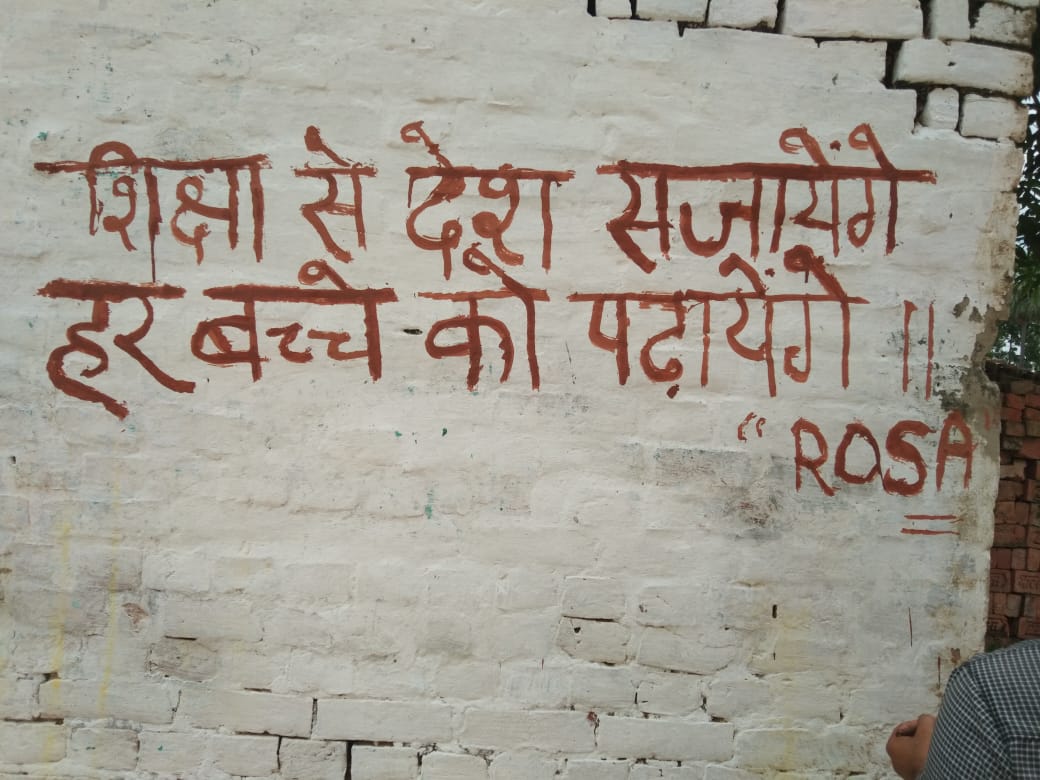 शिक्षा से देश सजायेंगे
हर बच्चे को पढ़ायेंगे ॥
“ROSA”